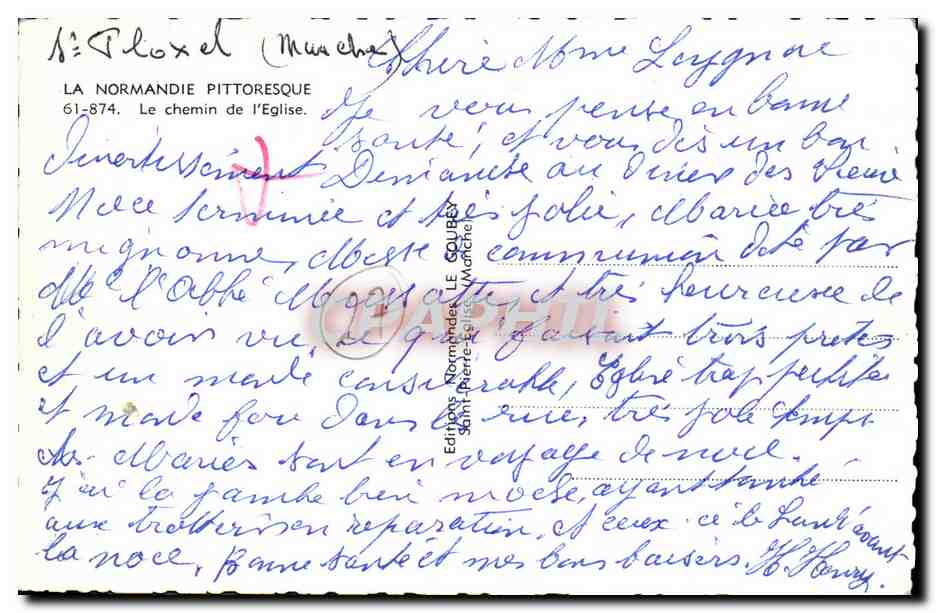 St Floxel (Manche)
LA NORMANDIE PITTORESQUE
61-874. Le chemin de l'Eglise.
Chère Mme
Je vous pense en bonne
santé, et vous dis un bon
Divertissement Dimanche au Diner des Vieux
Noce terminée et très jolie, Mariée très
mignonne, Messe de communion dite par
Mr l'Abbé et très heureuse de
l'avoir vu, ce qui faisait trois pretres
et un monde considérable, Eglise trop petite
et monde fou dans la rue, très jolie temps
les Mariés sont en voyage de noce.
J'ai la jambe bien moche, ayant tombé
aux trottoirs en réparation, et ceux-ci le Lundi avant
la noce, Bonne santé et mes bons baisers. H. Henry.
Editions Normandes LE GOUBEY
Saint-Pierre-Eglise (Manche)
CPAPHIL